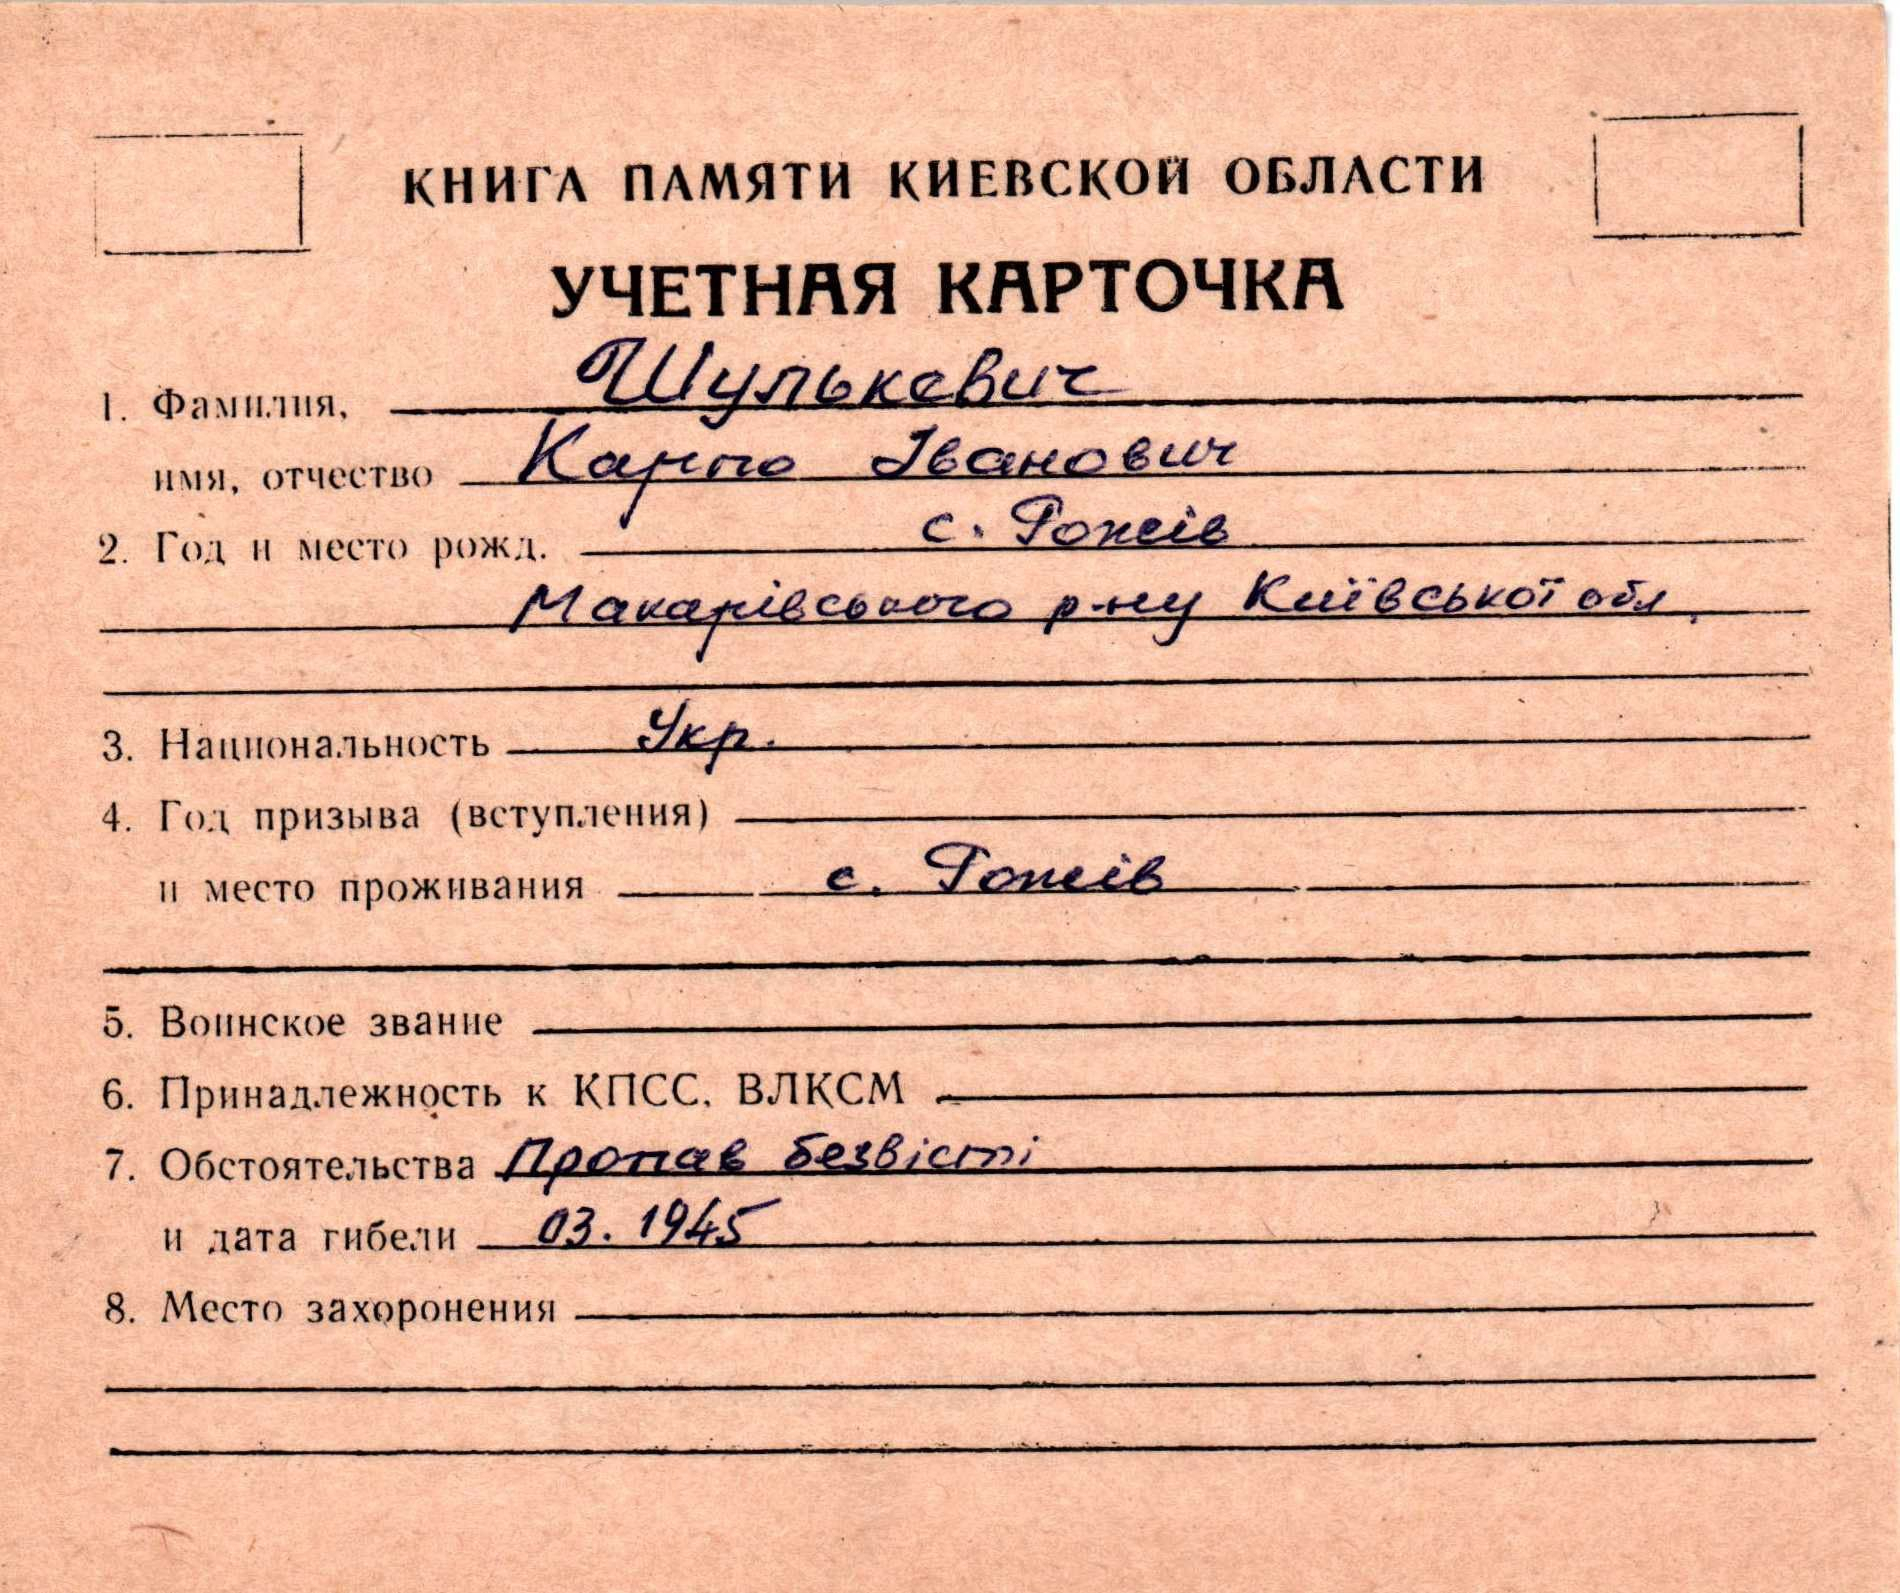 КНИГА ПАМЯТИ КИЕВСКОЙ ОБЛАСТИ
УЧЕТНАЯ КАРТОЧКА
1. Фамилия, Шулькевич
имя, отчество Карпо Іванович
2. Год и место рожд. с. Рожів
Макарівського р-ну Київської обл.
3. Национальность Укр.
4. Год призыва (вступления)
и место проживания с. Рожів
5. Воинское звание
6. Принадлежность к КПСС, ВЛКСМ
7. Обстоятельства Пропав безвісті
и дата гибели 03.1945
8. Место захоронения